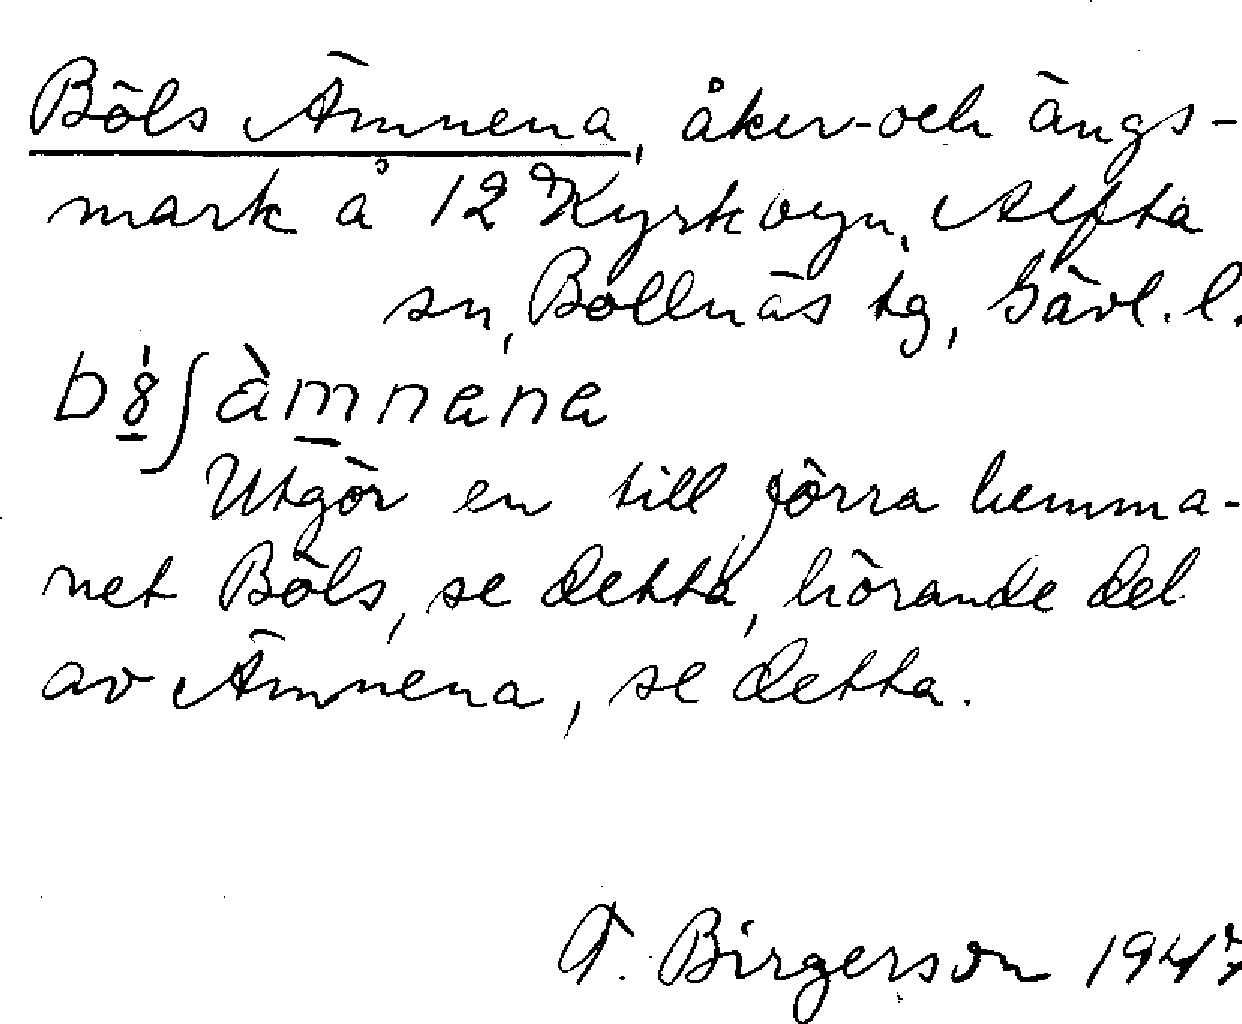 Böls Ämnena, åker- och ängs-
mark å 12 Kyrkbyn, Alfta
sn, Bollnäs tg, Gävl. l.
Utgör en till förra hemma-
net Böls, se detta, hörande del
av Ämnena, se detta.
T. Birgerson